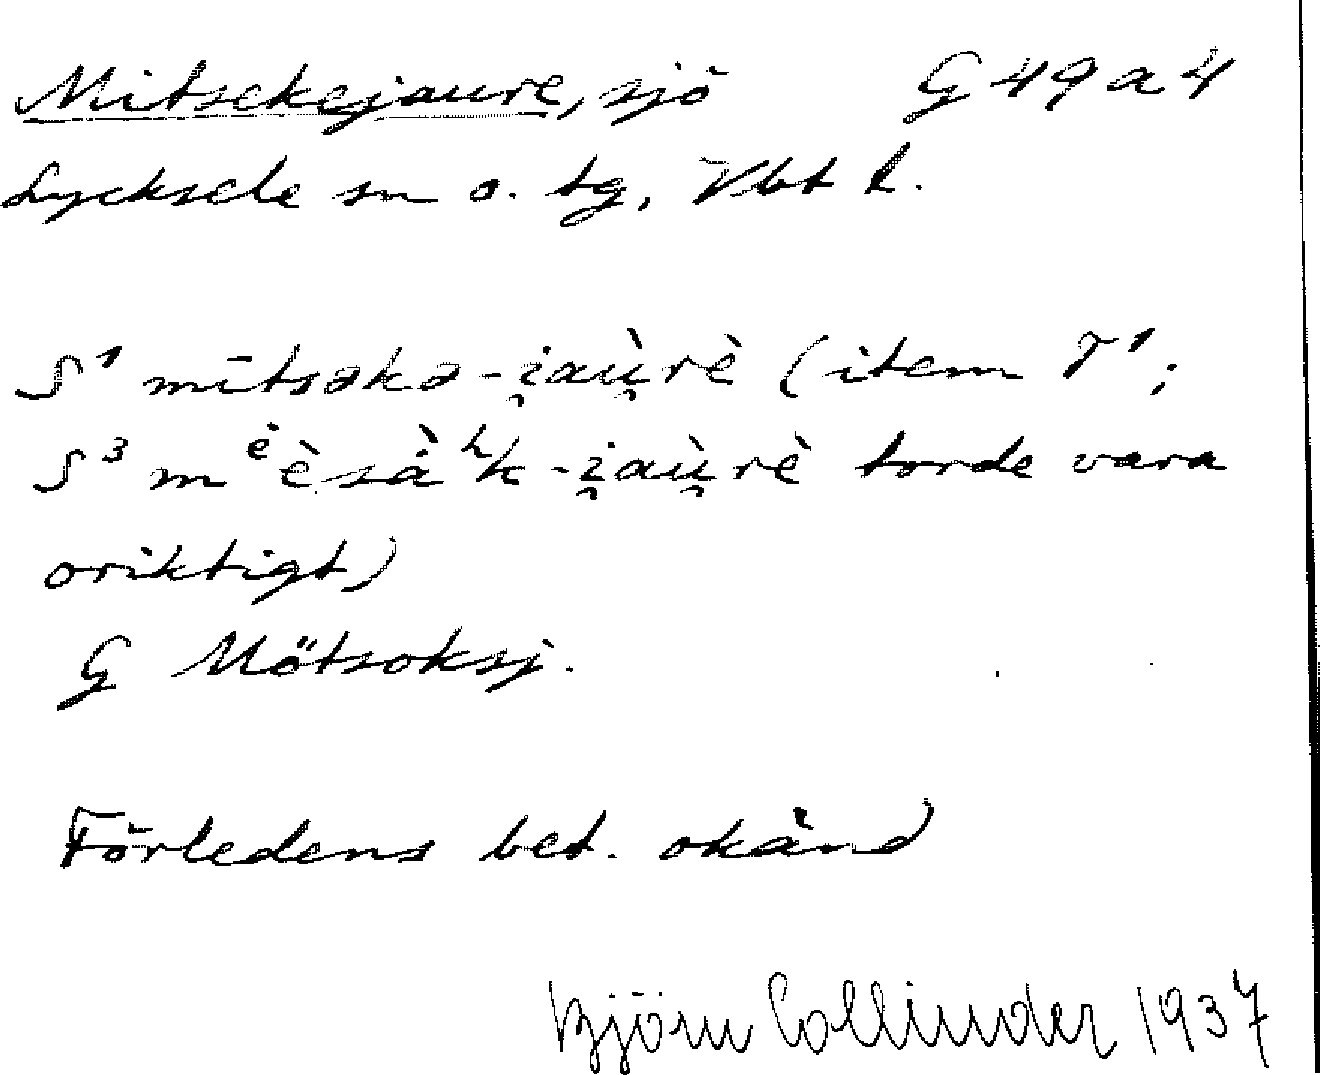 Mitsekejaure, sjö G 49 a 4
Lycksele sn o. tg, Vbt l.
S¹ mītsəkə-i̯aù̯rè (item T¹;
S³ mᵉ̇èsàʰk-i̯aù̯rè torde vara
oriktigt)
G Mötsoksj.
Förledens bet. okänd
Björn Collinder 1937